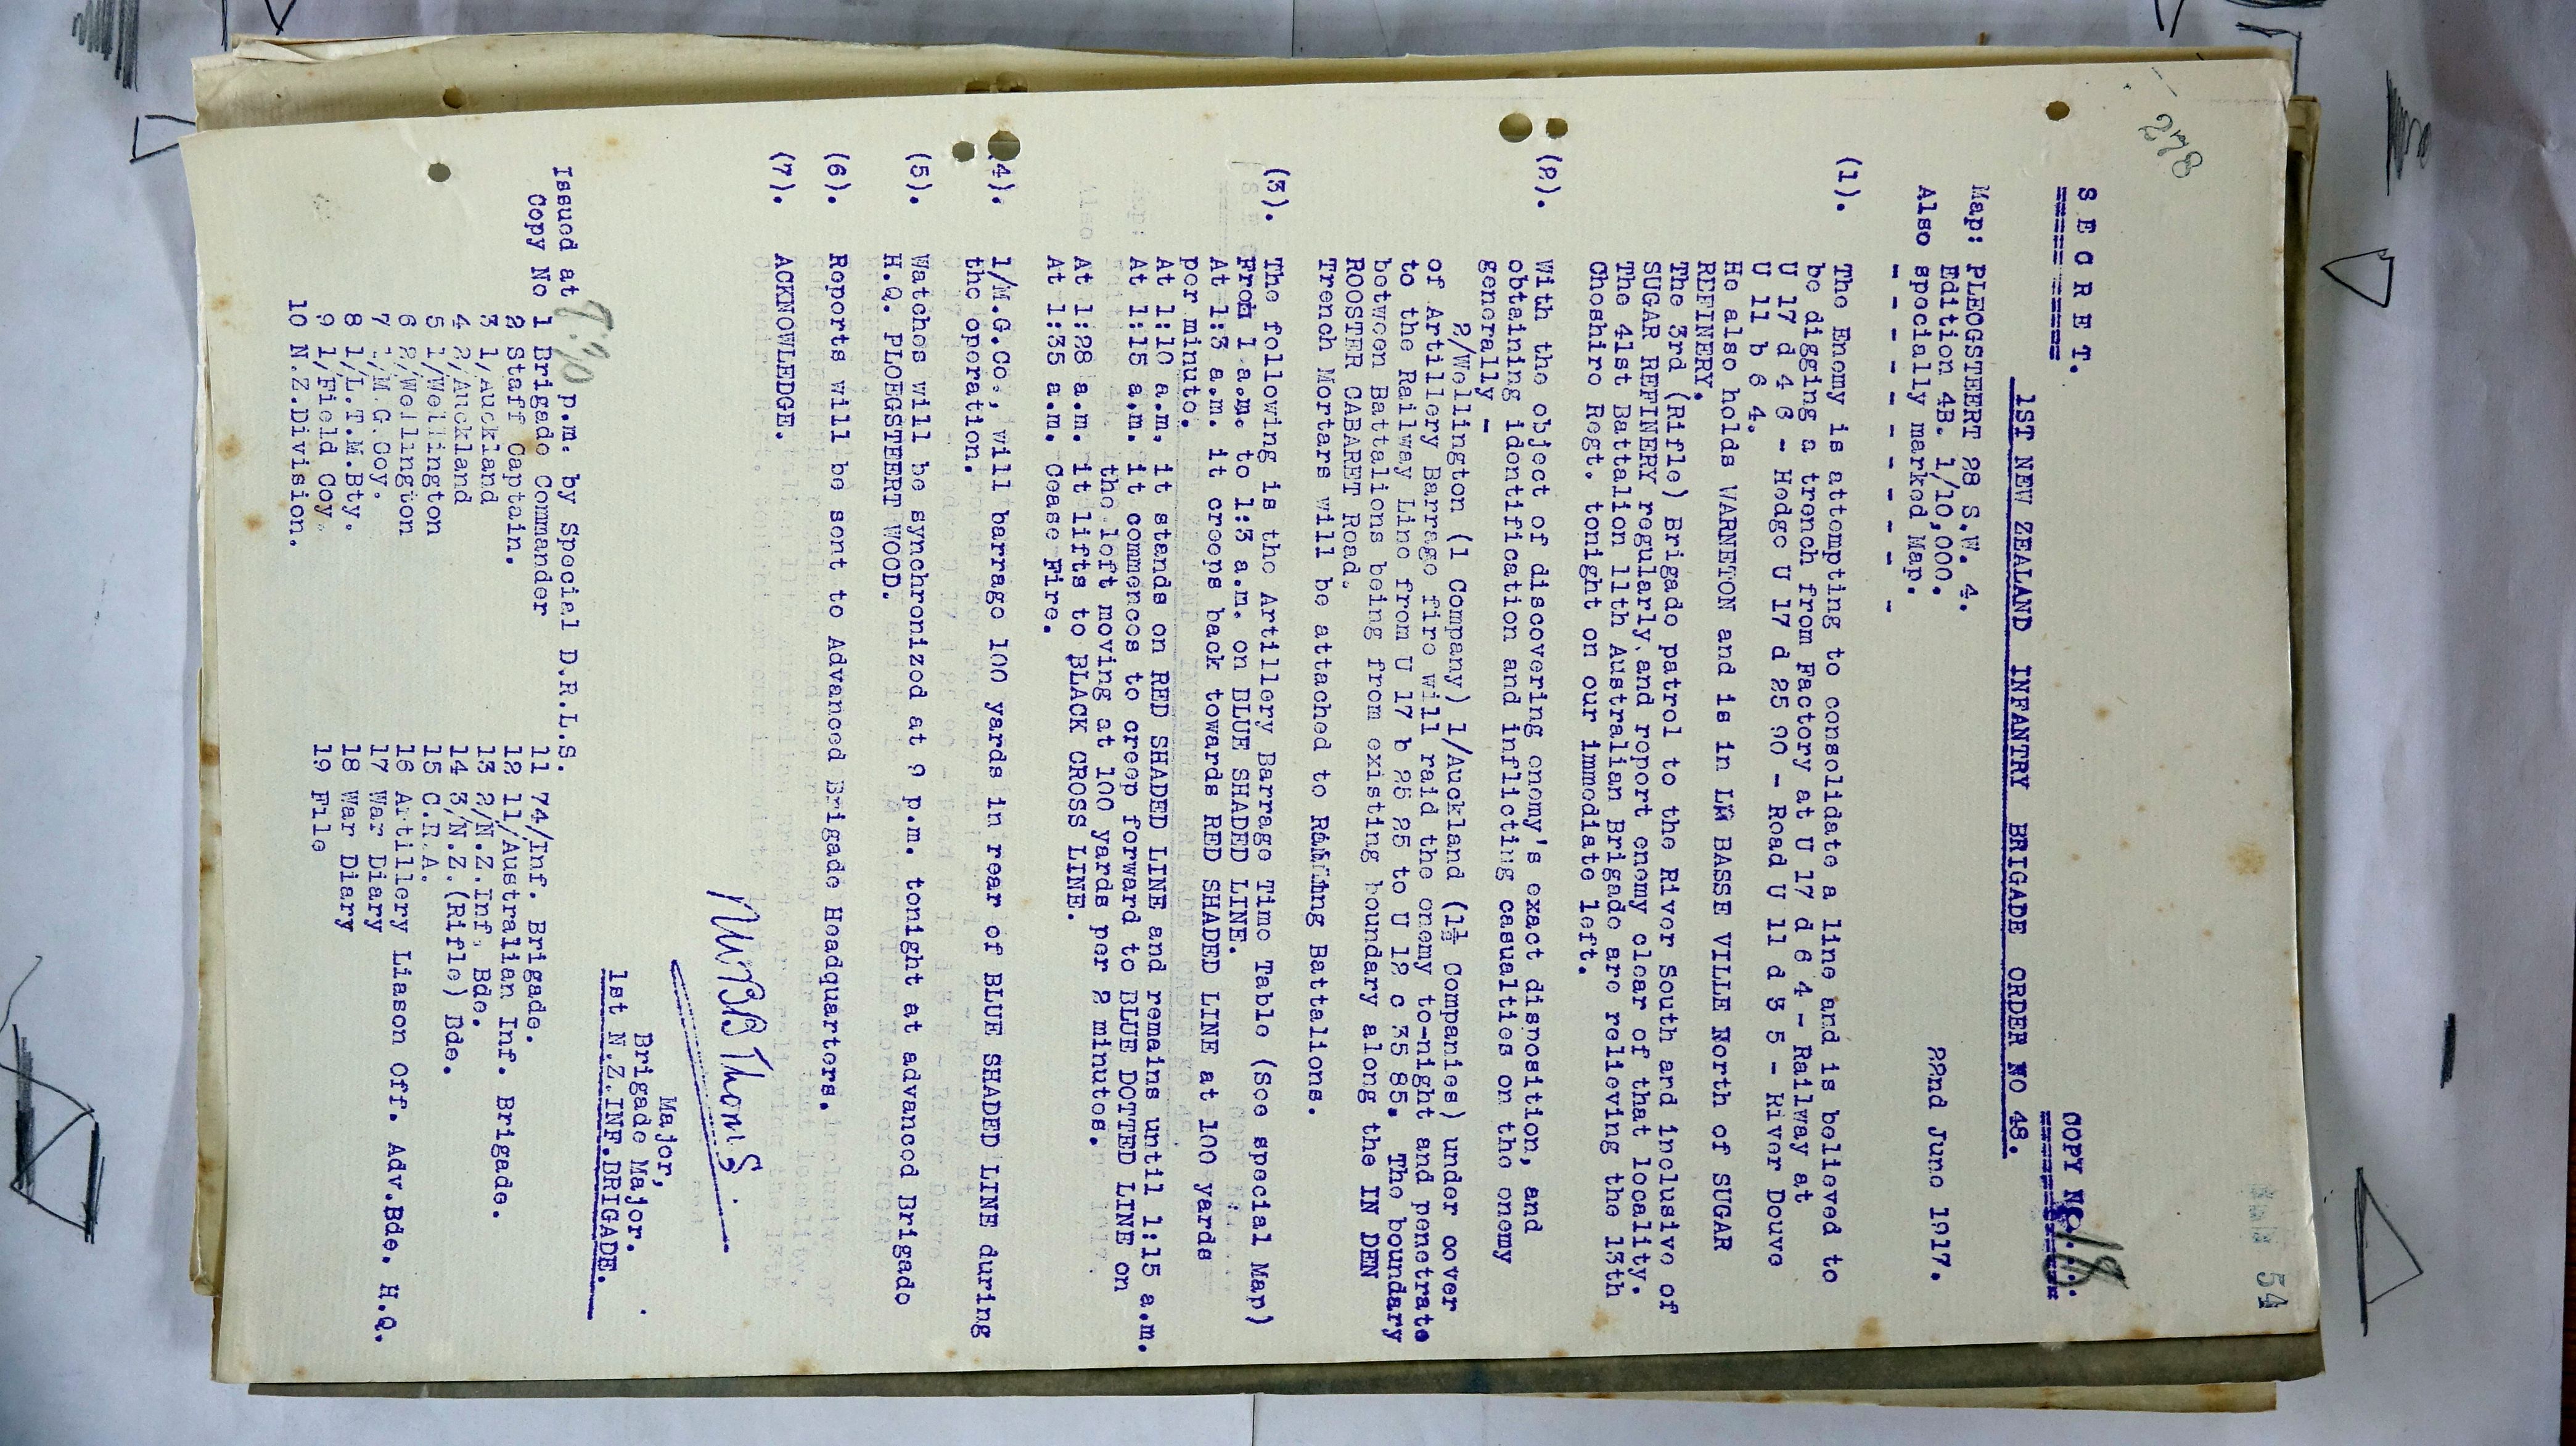 278
54
S E C R E T.
COPY No. 18
1ST NEW ZEALAND INFANTRY BRIGADE ORDER NO 48.
Map: PLEOGSTEERT 28 S.W. 4.
Edition 4B. 1/10,000.
Also specially marked Map.
22nd June 1917.
- - - - - - - - - - - -
(1). The Enemy is attempting to consolidate a line and is believed to
be digging a trench from Factory at U 17 d 6 4 - Railway at
U 17 d 4 6 - Hedge U 17 d 25 90 - Road U 11 d 3 5 - River Douve
U 11 b 6 4.
He also holds WARNETON and is in LA BASSE VILLE North of SUGAR
REFINERY.
The 3rd (Rifle) Brigade patrol to the River South and inclusive of
SUGAR REFINERY regularly and report enemy clear of that locality.
The 41st Battalion 11th Australian Brigade are relieving the 13th
Cheshire Regt. tonight on our immediate left.
(2). With the object of discovering enemy's exact disposition, and
obtaining identification and inflicting casualties on the enemy
generally -
2/Wellington (1 Company) 1/Auckland (1½ Companies) under cover
of Artillery Barrage fire will raid the enemy to-night and penetrate
to the Railway Line from U 17 b 25 25 to U 12 c 35 85. The boundary
between Battalions being from existing boundary along the IN DEN
ROOSTER CABARET Road.
Trench Mortars will be attached to Raiding Battalions.
(3). The following is the Artillery Barrage Time Table (See special Map)
From 1 a.m. to 1:3 a.m. on BLUE SHADED LINE.
At 1:3 a.m. it creeps back towards RED SHADED LINE at 100 yards
per minute.
At 1:10 a.m. it stands on RED SHADED LINE and remains until 1:15 a.m.
At 1:15 a.m. it commences to creep forward to BLUE DOTTED LINE on
the left moving at 100 yards per 2 minutes.
At 1:28 a.m. it lifts to BLACK CROSS LINE.
At 1:35 a.m. Cease Fire.
(4). 1/M.G.Co., will barrage 100 yards in rear of BLUE SHADED LINE during
the operation.
(5). Watches will be synchronized at 9 p.m. tonight at advanced Brigade
H.Q. PLOEGSTEERT WOOD.
(6). Reports will be sent to Advanced Brigade Headquarters.
(7). ACKNOWLEDGE.
Major,
Brigade Major.
1st N.Z.INF.BRIGADE.
Issued at p.m. by Special D.R.L.S.
Copy No 1 Brigade Commander
2 Staff Captain.
3 1/Auckland
4 2/Auckland
5 1/Wellington
6 2/Wellington
7 1/M.G.Coy.
8 1/L.T.M.Bty.
9 1/Field Coy.
10 N.Z.Division.
11 74/Inf. Brigade.
12 11/Australian Inf. Brigade.
13 2/N.Z.Inf. Bde.
14 3/N.Z.(Rifle) Bde.
15 C.R.A.
16 Artillery Liason Off. Adv.Bde. H.Q.
17 War Diary
18 War Diary
19 File